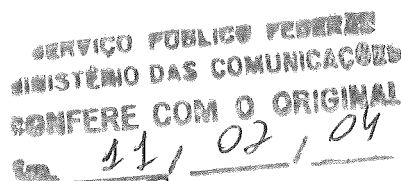 SERVIÇO PÚBLICO FEDERAL
MINISTÉRIO DAS COMUNICAÇÕES
CONFERE COM O ORIGINAL
Em 11 / 02 / 04